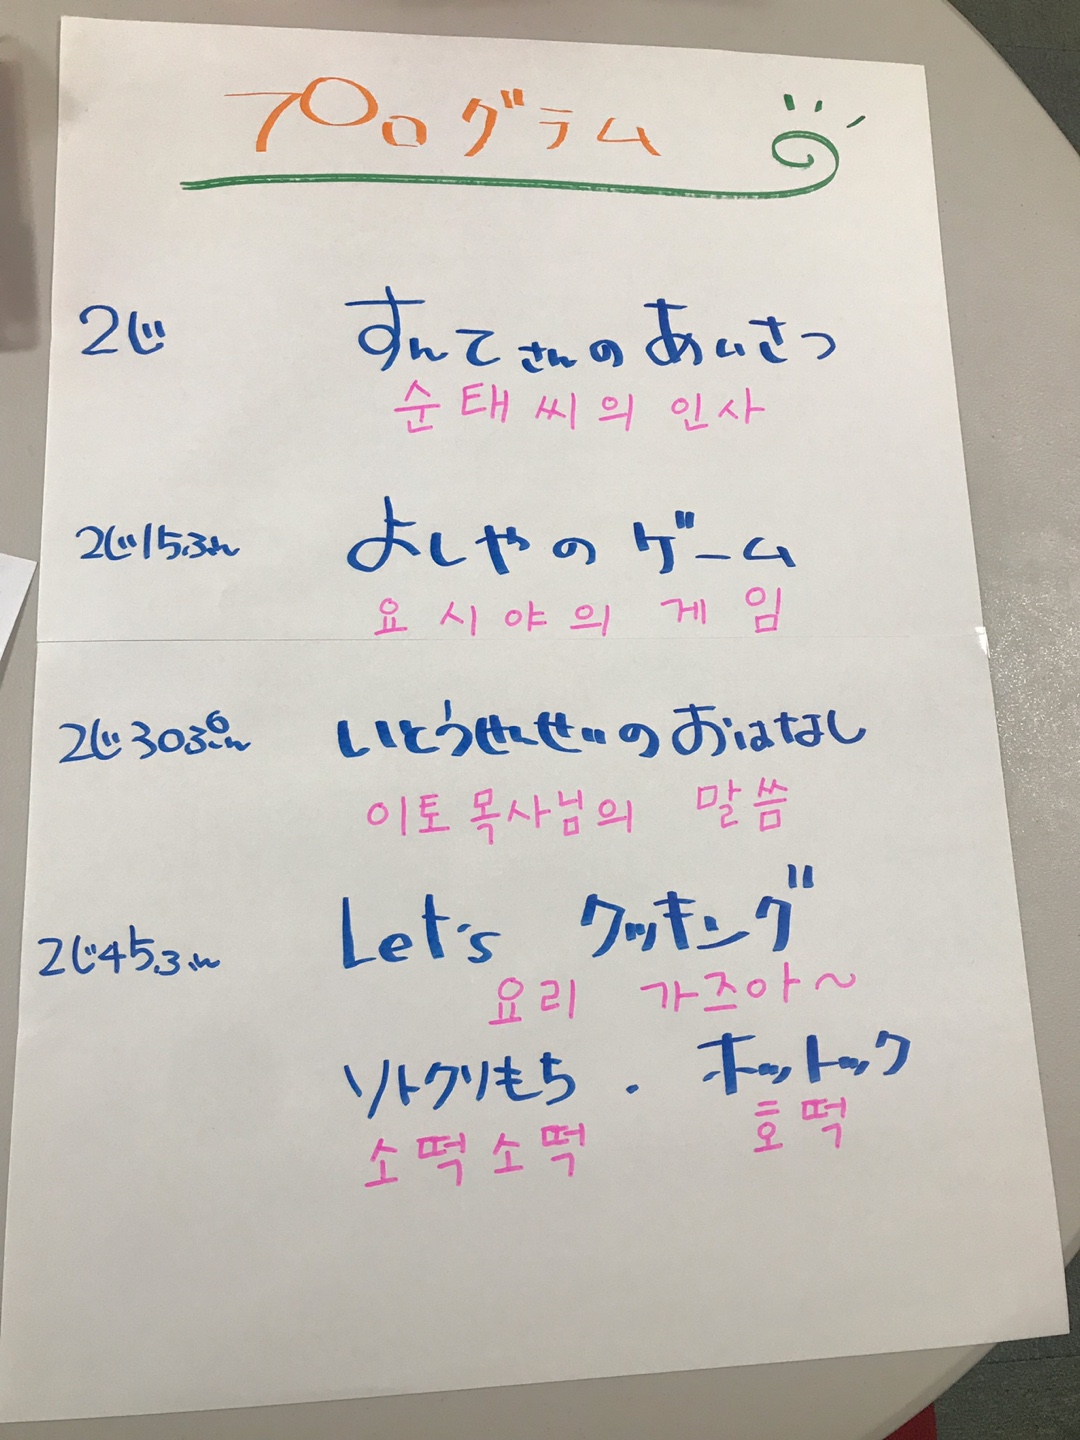 プログラム
2じ すんてさんのあいさつ
순태씨의 인사
2じ15ふん よしやのゲーム
요시야의 게임
2じ30ぷん いとうせんせいのおはなし
이토 목사님의 말씀
2じ45ふん Let's クッキング
요리 가즈아~
ソトクリもち . ホットック
소떡소떡 호떡